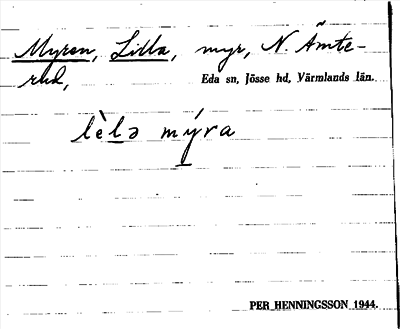 Myren, Lilla, myr, N. Ämte-
rud,
Eda sn, Jösse hd, Värmlands län.
lèlə mýra
PER HENNINGSSON 1944.